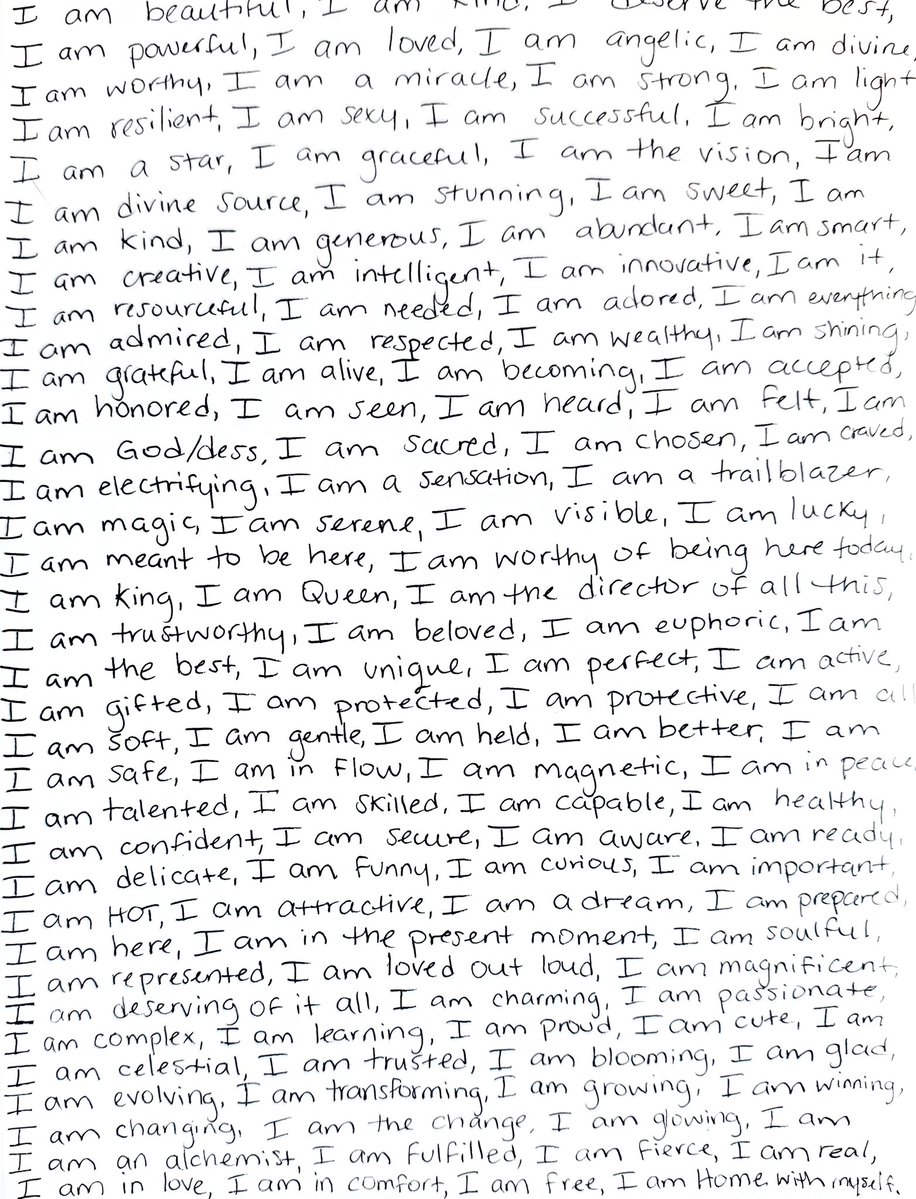 I am beautiful, I am kind, I deserve the best,
I am powerful, I am loved, I am angelic, I am divine,
I am worthy, I am a miracle, I am strong, I am light
I am resilient, I am sexy, I am successful, I am bright,
I am a star, I am graceful, I am the vision, I am
I am divine source, I am stunning, I am sweet, I am
I am kind, I am generous, I am abundant, I am smart,
I am creative, I am intelligent, I am innovative, I am it,
I am resourceful, I am needed, I am adored, I am everything
I am admired, I am respected, I am wealthy, I am shining,
I am grateful, I am alive, I am becoming, I am accepted,
I am honored, I am seen, I am heard, I am felt, I am
I am God/dess, I am sacred, I am chosen, I am craved,
I am electrifying, I am a sensation, I am a trailblazer,
I am magic, I am serene, I am visible, I am lucky,
I am meant to be here, I am worthy of being here today,
I am king, I am Queen, I am the director of all this,
I am trustworthy, I am beloved, I am euphoric, I am
I am the best, I am unique, I am perfect, I am active,
I am gifted, I am protected, I am protective, I am all
I am soft, I am gentle, I am held, I am better, I am
I am safe, I am in flow, I am magnetic, I am in peace,
I am talented, I am skilled, I am capable, I am healthy,
I am confident, I am secure, I am aware, I am ready,
I am delicate, I am funny, I am curious, I am important,
I am HOT, I am attractive, I am a dream, I am prepared,
I am here, I am in the present moment, I am soulful,
I am represented, I am loved out loud, I am magnificent,
I am deserving of it all, I am charming, I am passionate,
I am complex, I am learning, I am proud, I am cute, I am
I am celestial, I am trusted, I am blooming, I am glad,
I am evolving, I am transforming, I am growing, I am winning,
I am changing, I am the change, I am glowing, I am
I am an alchemist, I am fulfilled, I am fierce, I am real,
I am in love, I am in comfort, I am free, I am Home with myself.